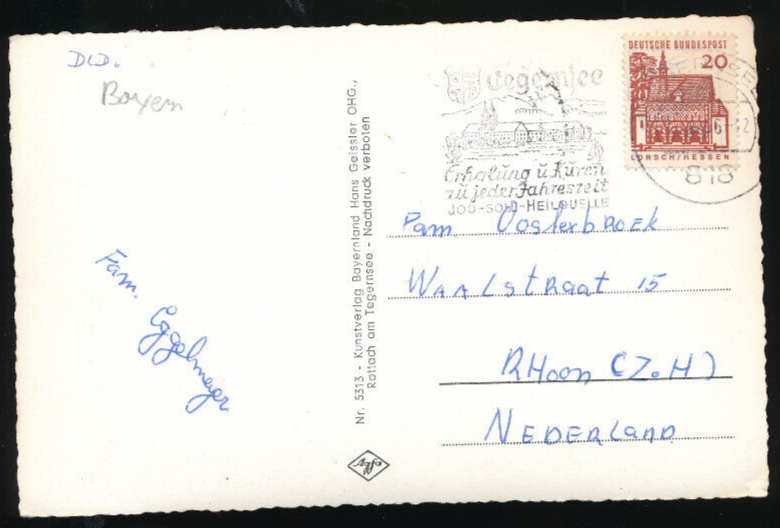 DLD.
Bayern
Tegernsee
Erholung u. Kuren
zu jeder Jahreszeit
JOD-SOLE-HEILQUELLE
DEUTSCHE BUNDESPOST
20
LORSCH/HESSEN
818
Nr. 5313 - Kunstverlag Bayernland Hans Geissler OHG.,
Rottach am Tegernsee - Nachdruck verboten
Agfa
Fam. Eggelmeijer
Fam. Oosterbroek
Waalstraat 15
RHoon (Z.H)
NEDERLAND